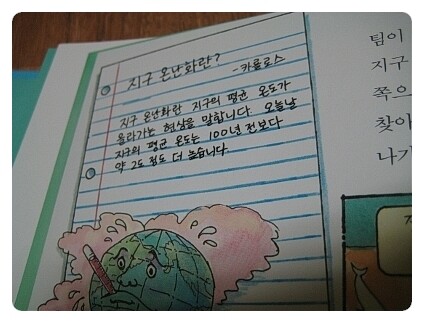 지구 온난화란?
-카를로스
지구 온난화란 지구의 평균 온도가
올라가는 현상을 말합니다. 오늘날
지구의 평균 온도는 100년 전보다
약 2도 정도 더 높습니다.
팀이
지구
쪽으
찾아
나가